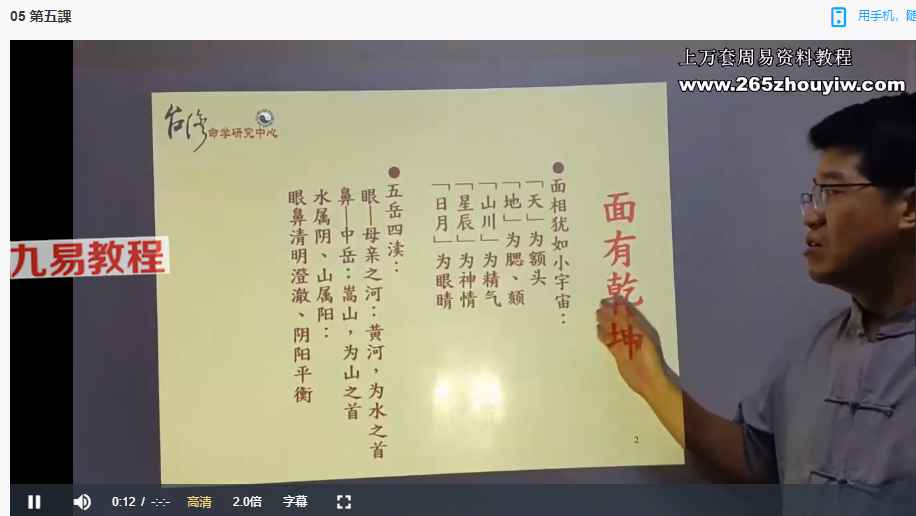 05 第五課
用手机，随
上万套周易资料教程
www.265zhouyiw.com
台湾命学研究中心
面有乾坤
●面相犹如小宇宙：
「天」为额头
「地」为腮、颏
「山川」为精气
「星辰」为神情
「日月」为眼睛
●五岳四渎：
眼—母亲之河：黄河，为水之首
鼻—中岳：嵩山，为山之首
水属阴、山属阳：
眼鼻清明澄澈、阴阳平衡
2
九易教程
0:12 / -:-:-
高清
2.0倍
字幕